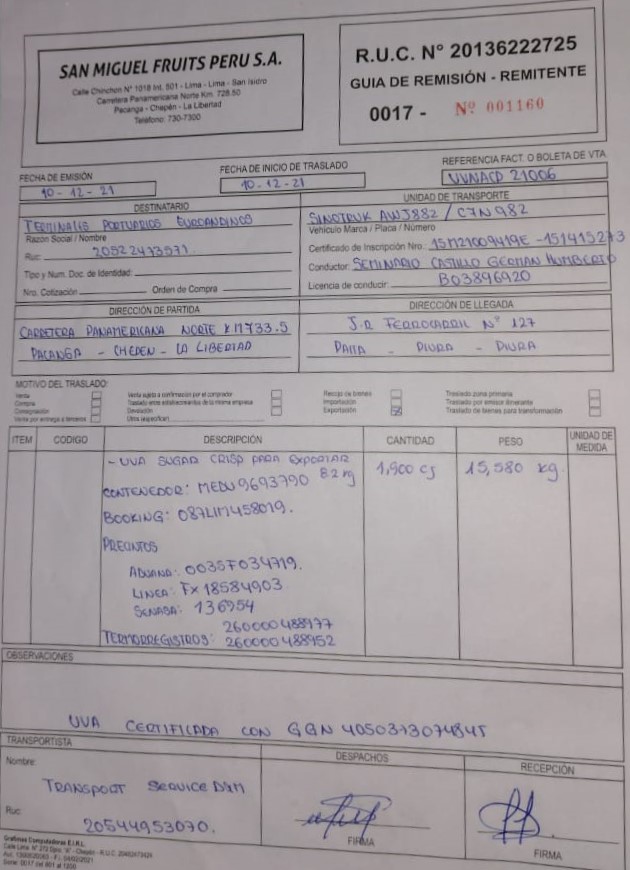 SAN MIGUEL FRUITS PERU S.A.
Calle Chinchon N° 1018 Int. 501 - Lima - Lima - San Isidro
Carretera Panamericana Norte Km. 728.50
Pacanga - Chepén - La Libertad
Teléfono: 730-7300
R.U.C. N° 20136222725
GUIA DE REMISIÓN - REMITENTE
0017 - Nº 001160
FECHA DE EMISIÓN
10-12-21
FECHA DE INICIO DE TRASLADO
10-12-21
REFERENCIA FACT. O BOLETA DE VTA
UVNACD 21006
DESTINATARIO
TERMINALES PORTUARIOS EUROANDINOS
Razón Social / Nombre
Ruc: 20522473571
Tipo y Num. Doc. de Identidad:
Nro. Cotización Orden de Compra
UNIDAD DE TRANSPORTE
SINOTRUK AWJ882 / C7N982
Vehículo Marca / Placa / Número
Certificado de Inscripción Nro.: 15M21009419E - 151415273
Conductor: SEMINARIO CASTILLO GERMAN HUMBERTO
Licencia de conducir: B03896920
DIRECCIÓN DE PARTIDA
CARRETERA PANAMERICANA NORTE KM733.5
PACANGA - CHEPEN - LA LIBERTAD
DIRECCIÓN DE LLEGADA
J.R FERROCARRIL N° 127
PAITA - PIURA - PIURA
MOTIVO DEL TRASLADO:
Venta
Compra
Consignación
Venta por entrega a terceros
Venta sujeta a confirmación por el comprador
Traslado entre establecimientos de la misma empresa
Devolución
Otros (especificar)
Recojo de bienes
Importación
Exportación
Traslado zona primaria
Traslado por emisor itinerante
Traslado de bienes para transformación
ITEM CODIGO DESCRIPCIÓN CANTIDAD PESO UNIDAD DE MEDIDA
- UVA SUGAR CRISP PARA EXPORTAR 8.2 kg 1,900 cj 15,580 kg.
CONTENEDOR: MEDU9693790
BOOKING: 087LIM458019.
PRECINTOS
ADUANA: 0035F034719.
LINEA: FX18584903
SENASA: 136954
260000488977
TERMORREGISTROS: 260000488952
OBSERVACIONES
UVA CERTIFICADA CON GGN 4050373074845
TRANSPORTISTA
Nombre:
TRANSPORT SERVICE D&M
Ruc: 20544953070.
DESPACHOS
FIRMA
RECEPCIÓN
FIRMA
Graficos Computadoras E.I.R.L.
Serie: 0017 del 801 al 1200